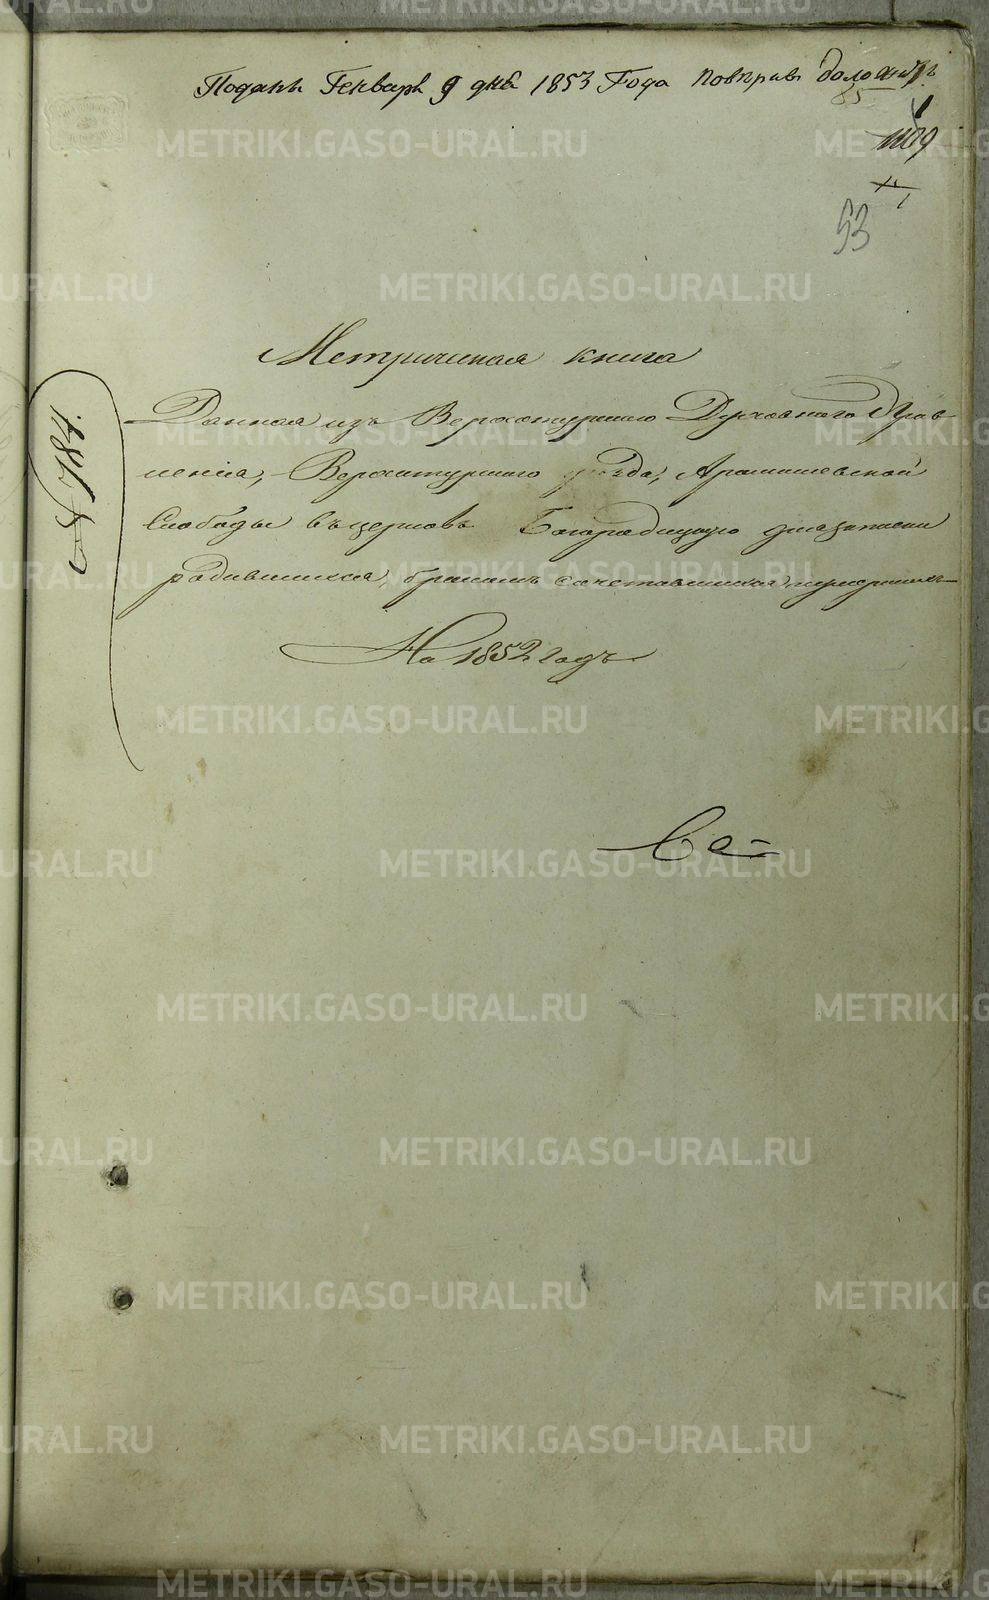 Поданъ Генваря 9 дня 1853 Года повѣривъ доложить
85
1
53
Метрическая книга
Данная изъ Верхотурскаго Духовнаго Прав
ленія, Верхотурскаго уезда, Арамашевской
Слободы въ церковь Богородицкую для записки
родившихся, бракомъ сочетавшихся, и умершихъ
На 1852 годъ
№ 184.
METRIKI.GASO-URAL.RU